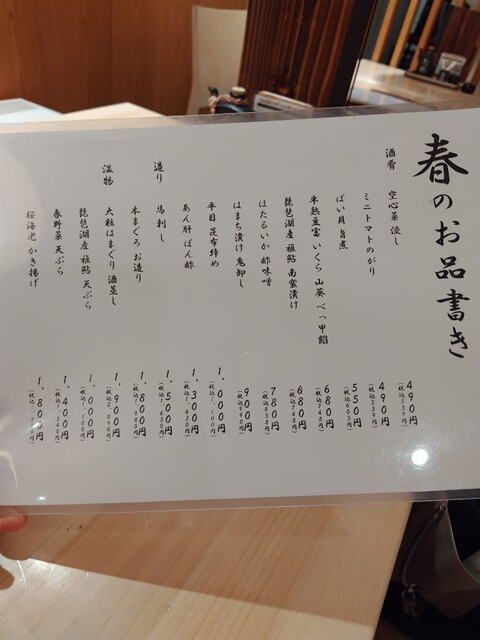 春のお品書き
酒肴
空心菜 浸し 490円(税込539円)
ミニトマトのがり 490円(税込539円)
ばい貝 旨煮 550円(税込605円)
半熟豆富 いくら 山葵 べっ甲餡 680円(税込748円)
琵琶湖産 稚鮎 南蛮漬け 680円(税込748円)
ほたるいか 酢味噌 780円(税込858円)
はまち漬け 鬼卸し 900円(税込990円)
平目 昆布締め 1,000円(税込1,100円)
あん肝 ぽん酢 1,300円(税込1,430円)
造り
馬刺し 1,500円(税込1,650円)
本まぐろ お造り 1,800円(税込1,980円)
温物
大粒はまぐり 酒蒸し 1,900円(税込2,090円)
琵琶湖産 稚鮎 天ぷら 1,000円(税込1,100円)
春野菜 天ぷら
桜海老 かき揚げ 1,800円(税込1,980円)